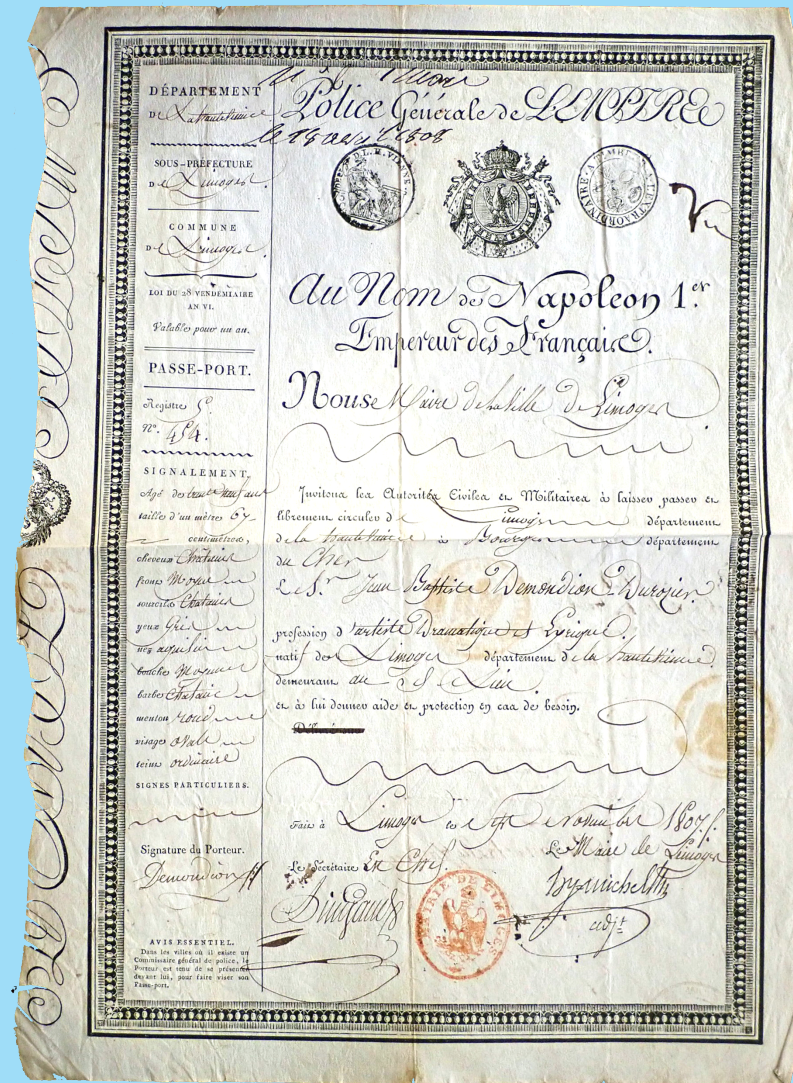 DÉPARTEMENT
De La haute Vienne
le 18 1808
SOUS-PRÉFECTURE
De Limoges
COMMUNE
De Limoges
LOI DU 28 VENDÉMIAIRE
AN VI.
Valable pour un an.
PASSE-PORT.
Registre 5.
N.º 454.
SIGNALEMENT.
Agé de trente neuf ans
taille d'un mètre 67
centimètres,
cheveux Chatains
front Moyen
sourcils Chatains
yeux Gris
nez aquilin
bouche Moyenne
barbe Chataine
menton rond
visage ovale
teint ordinaire
SIGNES PARTICULIERS.
Signature du Porteur.
Demondion
AVIS ESSENTIEL.
Dans les villes où il existe un
Commissaire général de police, le
Porteur est tenu de se présenter
devant lui, pour faire viser son
Passe-port.
Police Générale de L'EMPIRE
A TIMBRER A L'EXTRAORDINAIRE
Vu
Au Nom de Napoleon 1.er
Empereur des Français.
Nous Maire de la Ville de Limoges
Invitons les Autorités Civiles et Militaires à laisser passer et
librement circuler de Limoges département
de la haute Vienne à Bourges département
du Cher
Le S.r Jean Baptiste Demondion-Durozier
profession d'artiste Dramatique et Lyrique.
natif de Limoges département de la haute Vienne
demeurant au
et à lui donner aide et protection en cas de besoin.
Délivré
Fait à Limoges le sept novembre 1807.
Le Maire de Limoges
Le Secrétaire En Chef
adj.t
MAIRIE DE LIMOGES